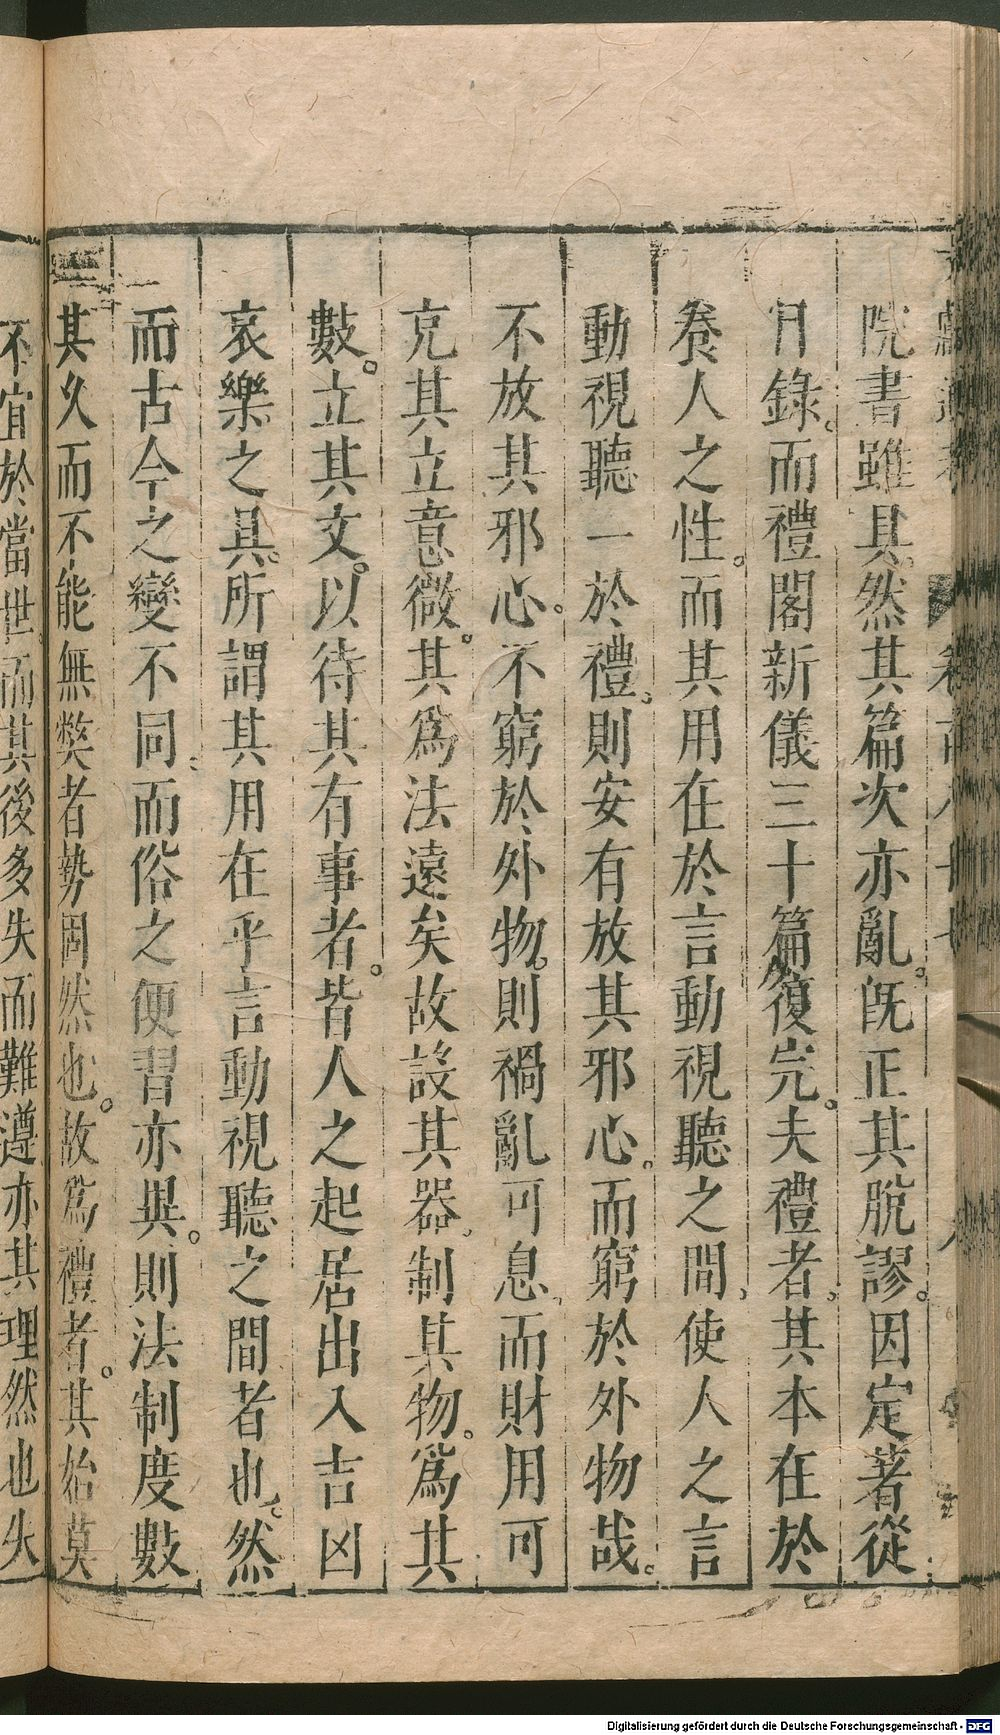 院書雖其。然其篇次亦亂。旣正其脫謬。因定著從
目錄。而禮閣新儀三十篇復完。夫禮者。其本在於
養人之性。而其用在於言動視聽之間。使人之言
動視聽一於禮。則安有放其邪心。而窮於外物哉。
不放其邪心。不窮於外物。則禍亂可息。而財用可
充其立意微。其爲法遠矣故設其器。制其物。爲其
數。立其文。以待其有事者。皆人之起居出入吉凶
哀樂之具。所謂其用在乎言動視聽之間者也。然
而古今之變不同。而俗之便習亦異。則法制度數
其久而不能無獘者勢固然也。故爲禮者。其始莫
不宜於當世。而其後多失而難遵亦其理然也失
Digitalisierung gefördert durch die Deutsche Forschungsgemeinschaft - DFG